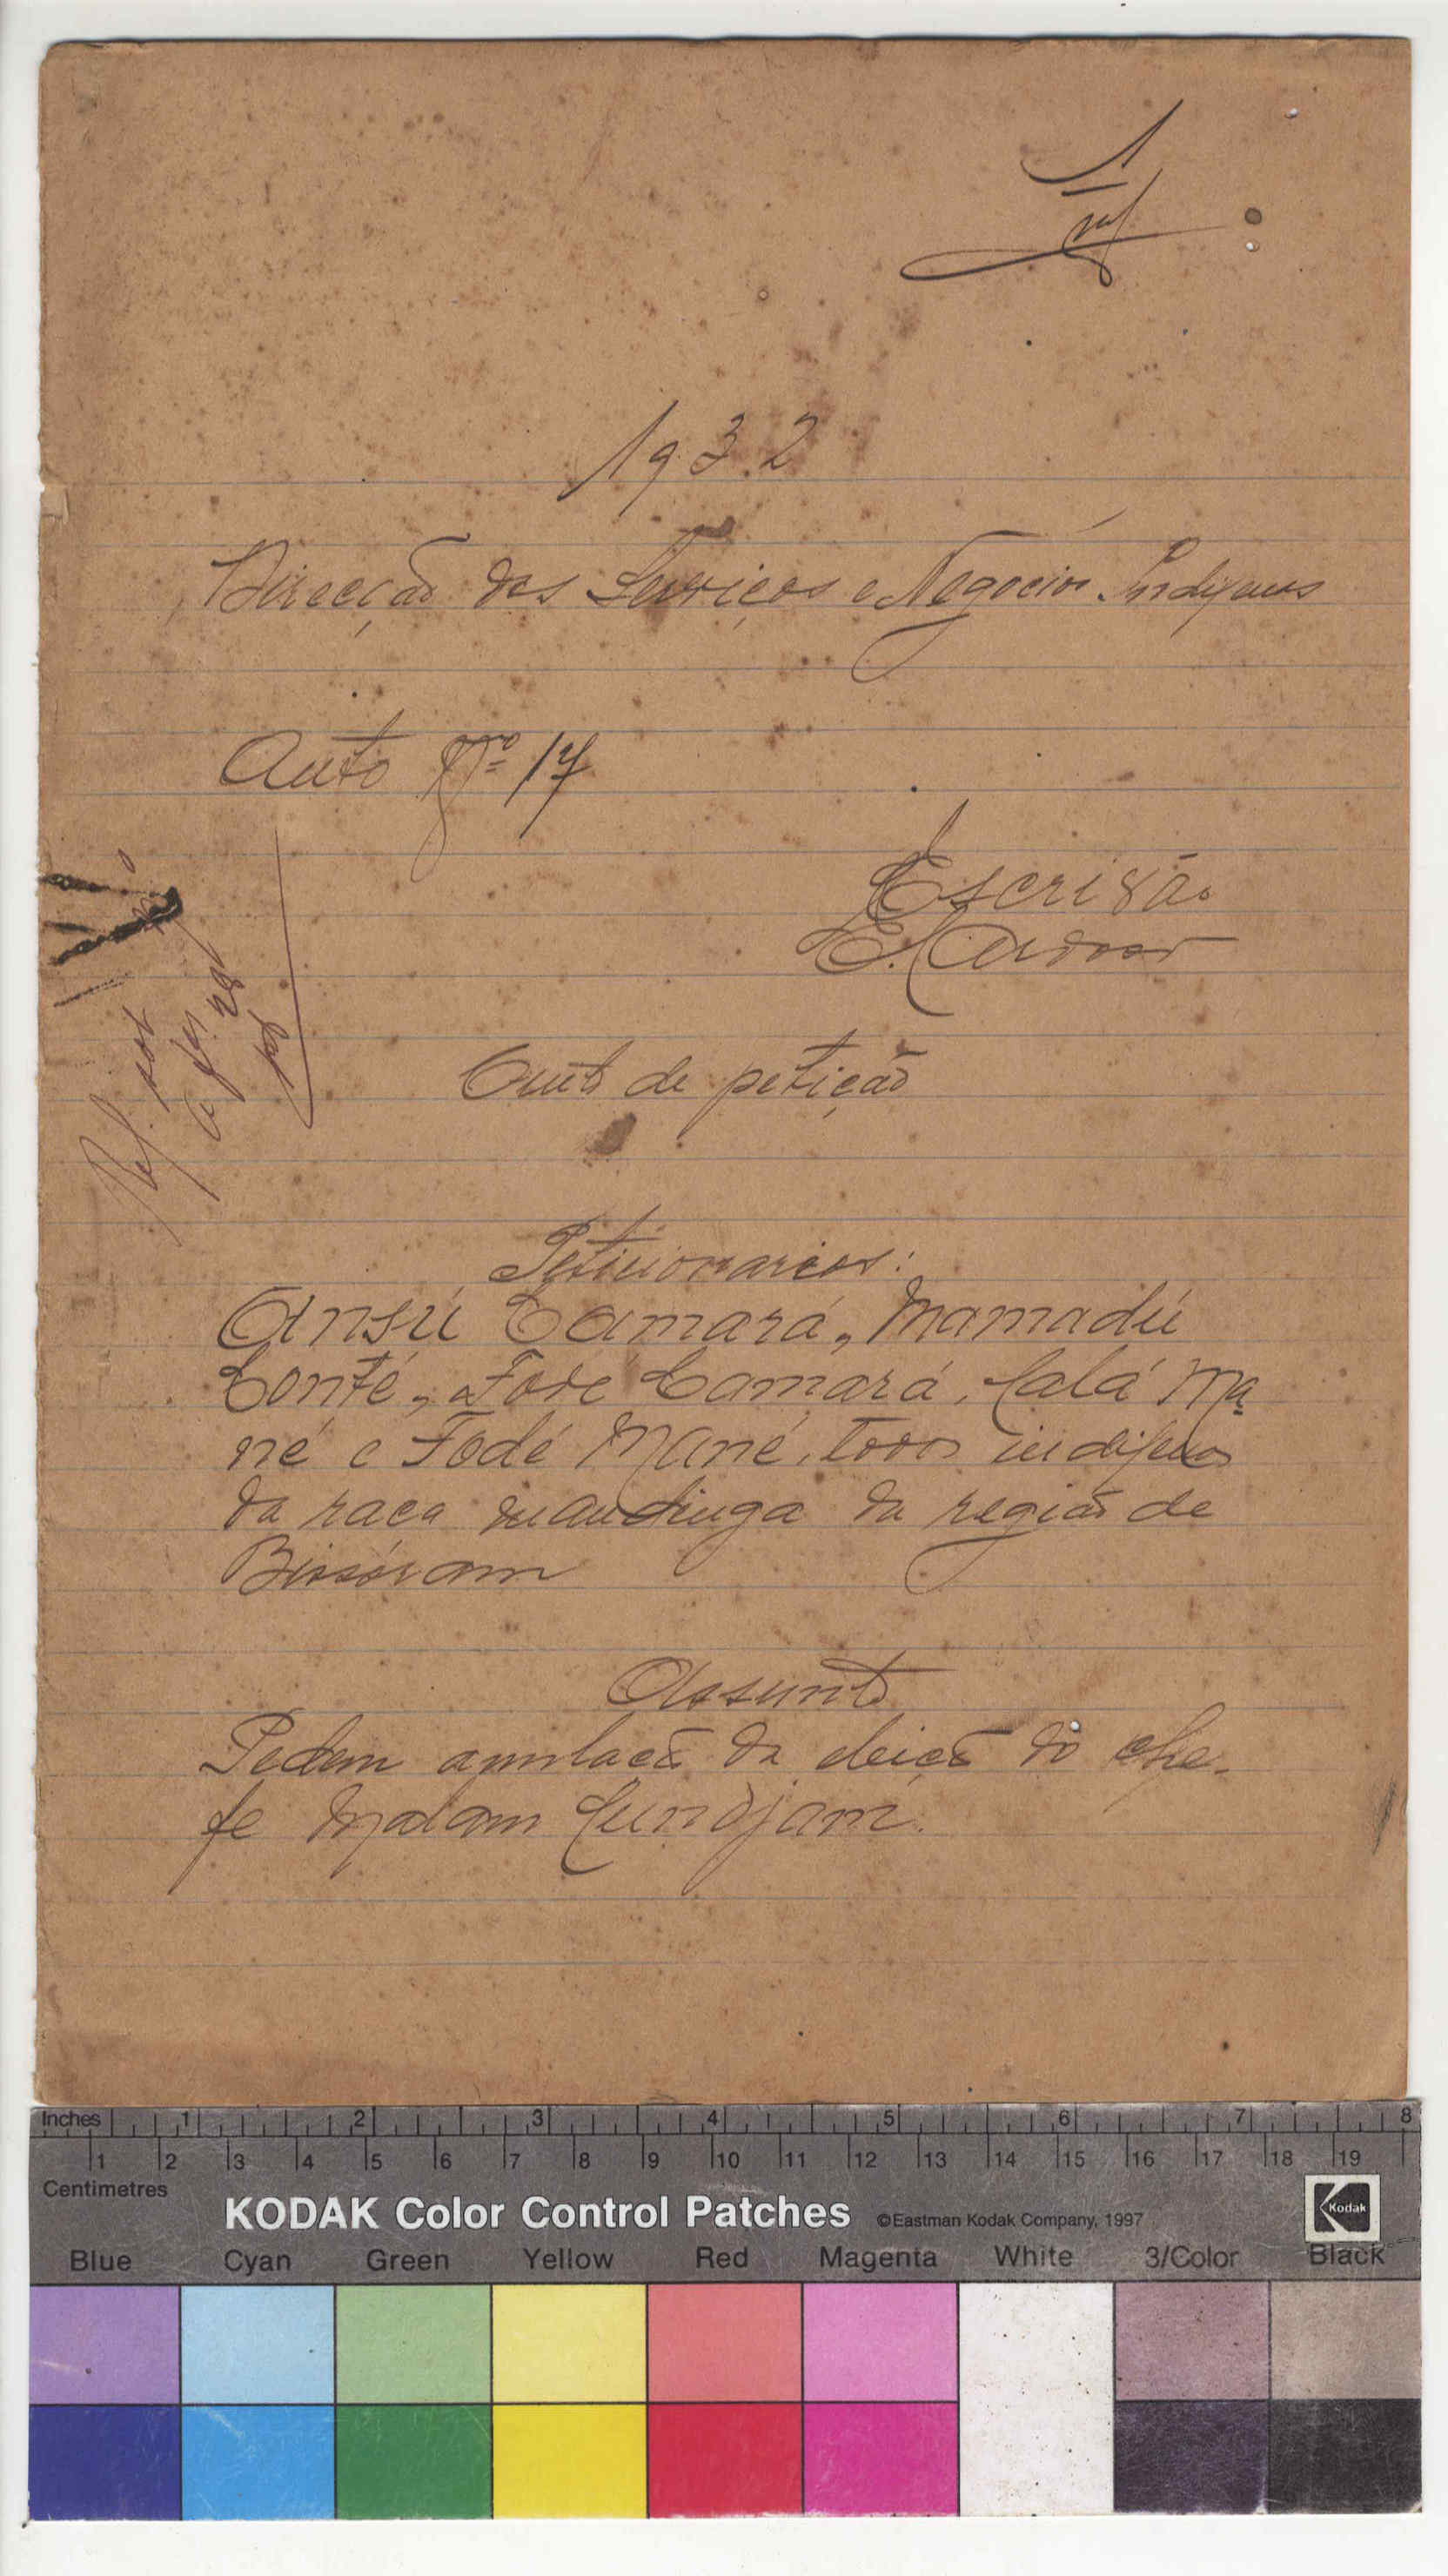 1932
Direcção dos Serviços e Negocios Indigenas
Auto Nº 17
Escrivão
E. Cardoso
Auto de petição
Peticionarios:
Ansú Camará, Mamadú
Conté, Fodé Camará, Calá Ma
né e Fodé Mané, todos indigenas
da raça mandinga da região de
Bissoram
Assunto
Pedem anulacão da eleição do che-
fe Malam Cundjam.
Inches 1 2 3 4 5 6 7 8
1 2 3 4 5 6 7 8 9 10 11 12 13 14 15 16 17 18 19
Centimetres
KODAK Color Control Patches ©Eastman Kodak Company, 1997 Kodak
Blue Cyan Green Yellow Red Magenta White 3/Color Black